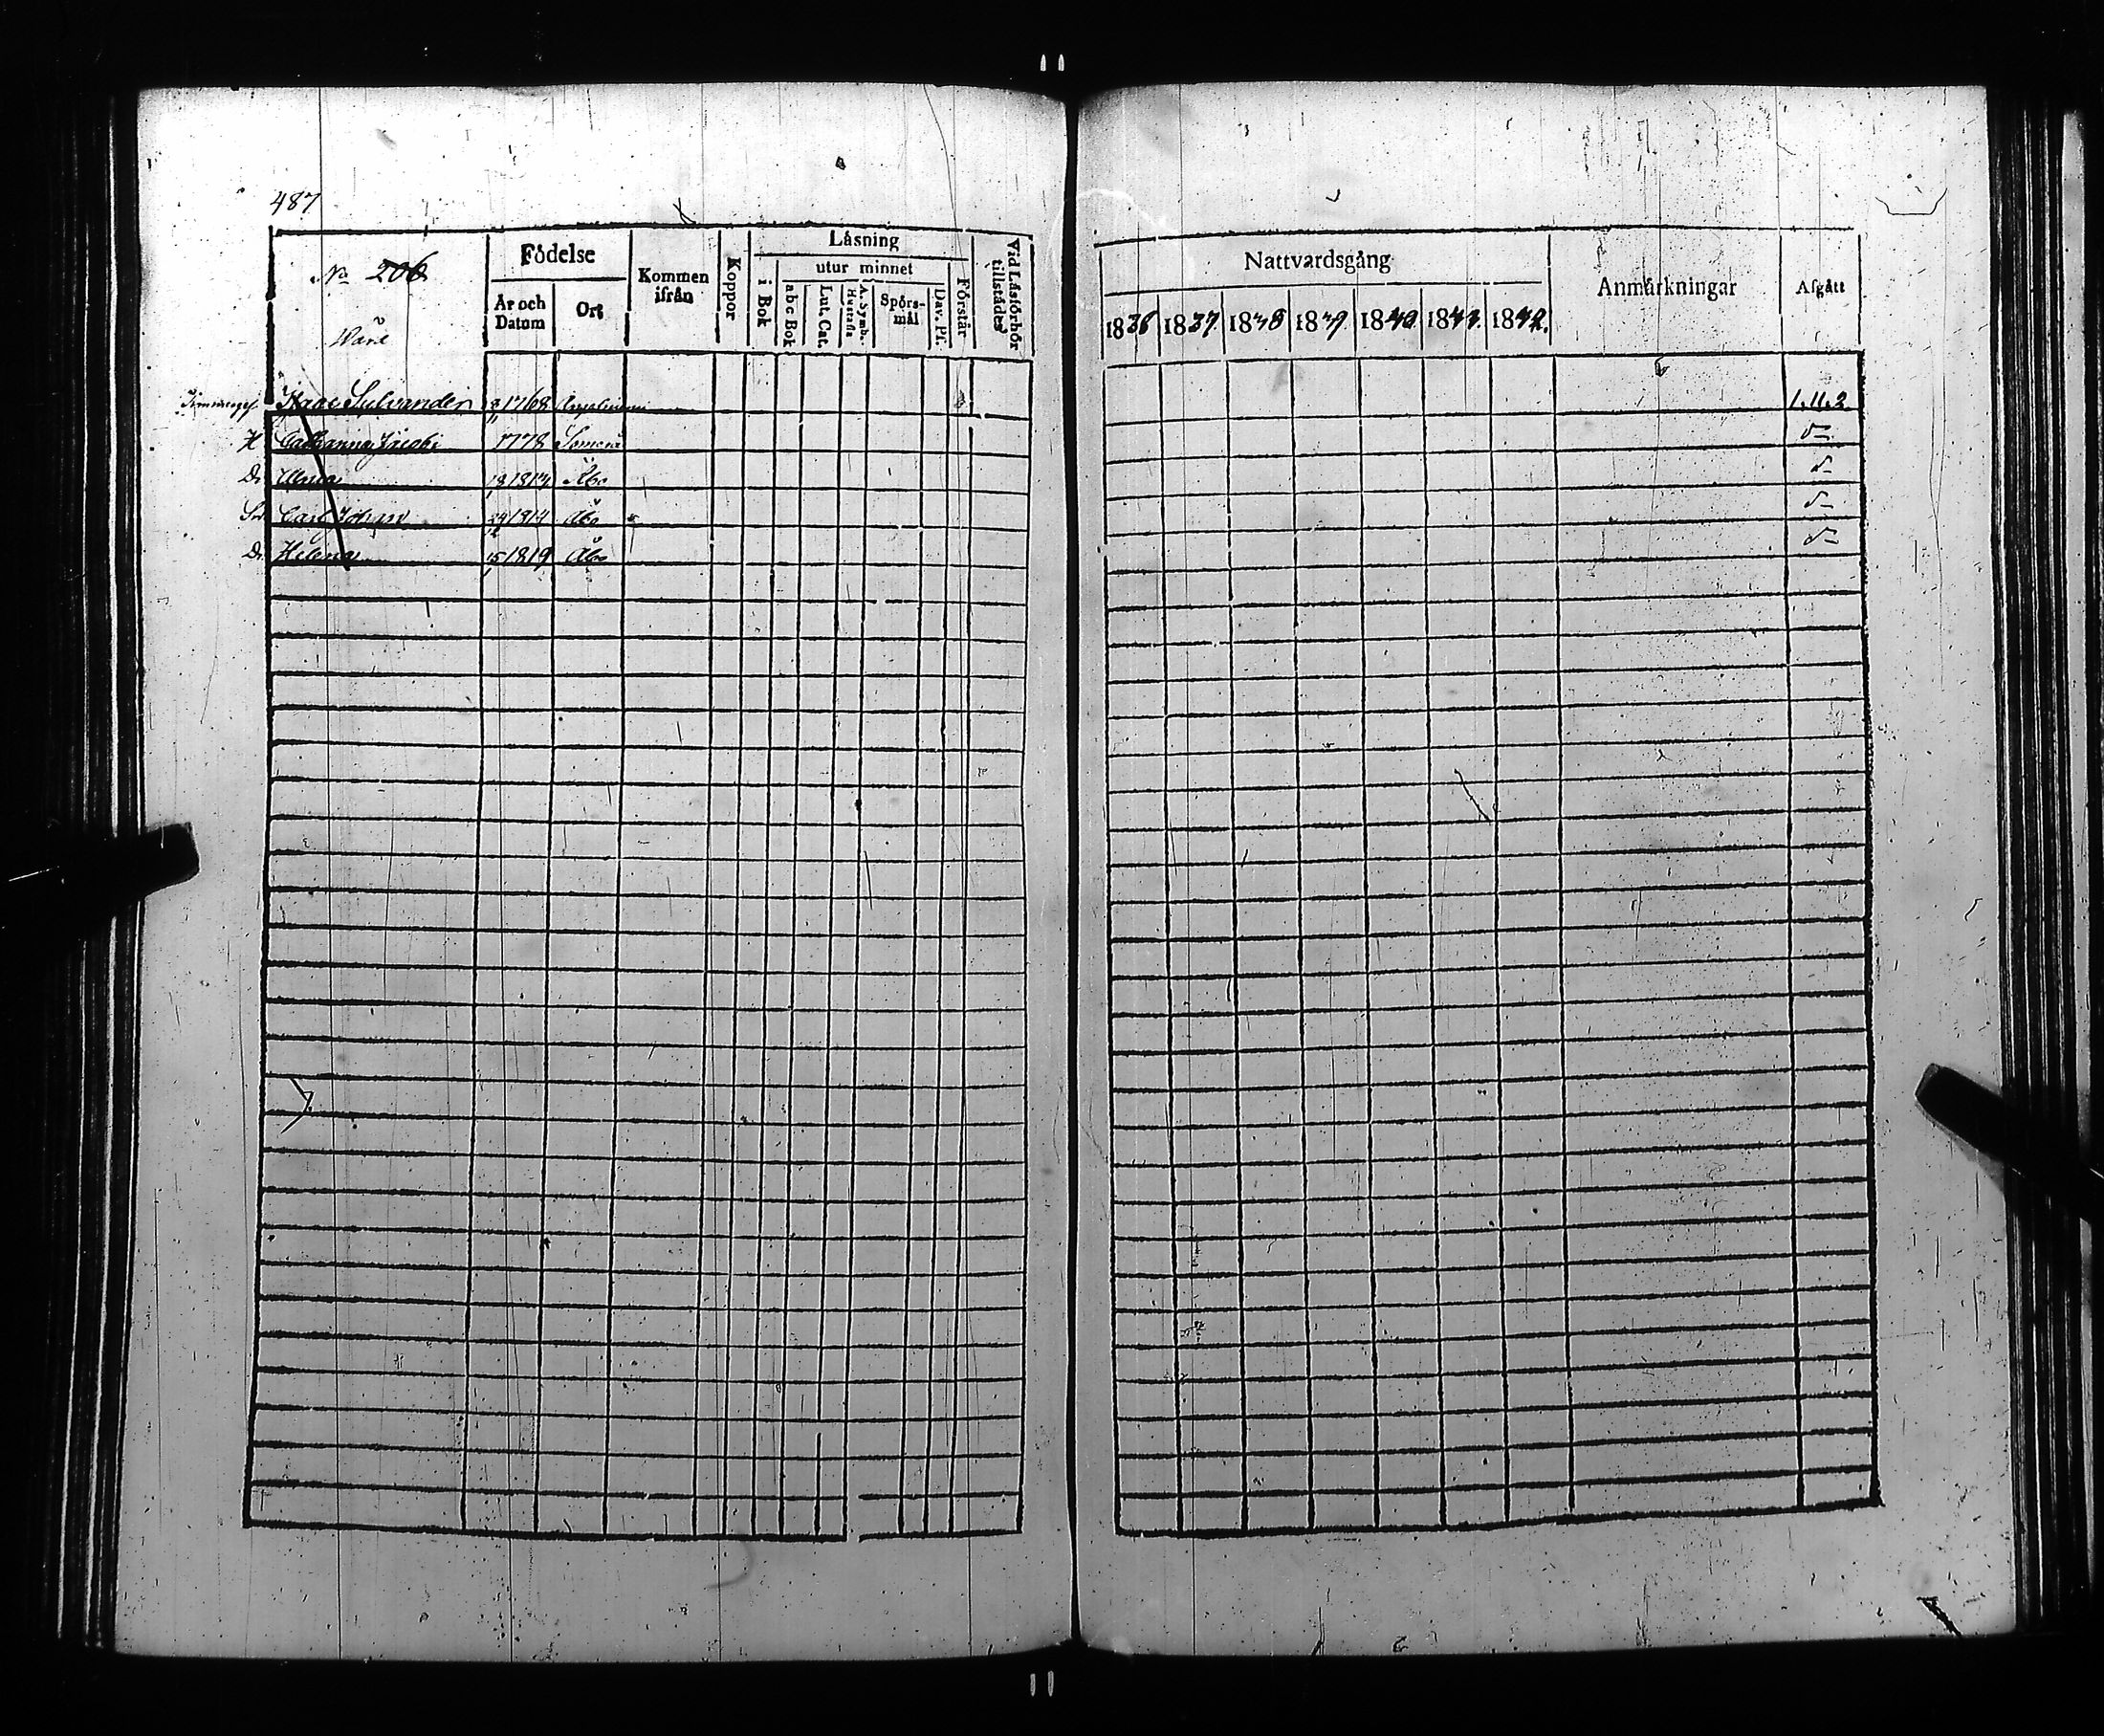 487
No 206
Födelse
Kommen ifrån
Koppor
Läsning
utur minnet
i Bok
abc Bok
Lut. Cat.
A. Symb.
Hustafla
Spörs-mål
Dav. Ps.
Förstår
Vid Läsförhör tillstädes
År och Datum
Ort
Nattvardsgång
Anmärkningar
Afgått
1836 1837. 1838 1839 1840 1841. 1842.
Isaac Sylvander 1768 1.11.2
H Catharina Jacobi 1778 Somero d—
Dr Ulrica 18 Åbo d—
Son Carl Johan 1814 Åbo d—
Dr Helena 15 1819 Åbo d—